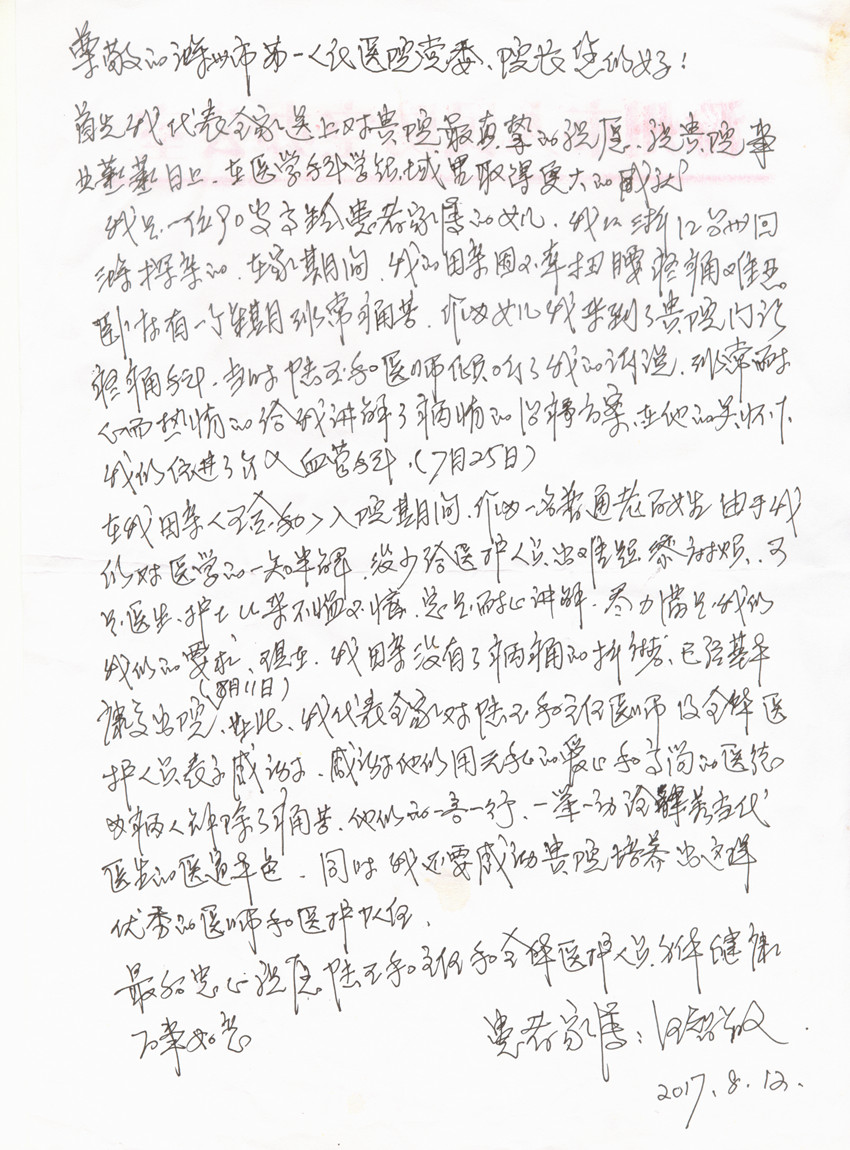 尊敬的滁州市第一人民医院党委、院长您们好！
首先我代表全家送上对贵院最真挚的祝愿、祝贵院事
业蒸蒸日上、在医学科学领域里取得更大的成就
我是一位90岁高龄患者家属的女儿，我从浙江台州回
滁探亲的，在家期间，我的母亲因不幸扭腰疼痛难忍。
卧床有一个星期非常痛苦，作为女儿我来到了贵院门诊
疼痛科，当时陆玉和医师倾听了我的诉说，非常耐
心而热情的给我讲解了病情的治疗方案，在他的关怀下，
我们住进了介入血管科，（7月25日）
在我母亲入院期间，作为一名普通老百姓由于我
们对医学的一知半解，没少给医护人员出难题添麻烦，可
是医生、护士从来不恼不怒，总是耐心讲解，尽力满足我们
我们的要求，现在，我母亲没有了病痛的折磨，已经基本
（8月11日）
康复出院，在此，我代表全家对陆玉和主任医师及全体医
护人员表示感谢，感谢他们用无私的爱心和高尚的医德
为病人解除了痛苦，他们的一言一行、一举一动诠释着当代
医生的医道本色，同时我还要感动贵院培养出这样
优秀的医师和医护队伍，
最后衷心祝愿陆玉和主任和全体医护人员身体健康
万事如意
患者家属：
2017.8.12.